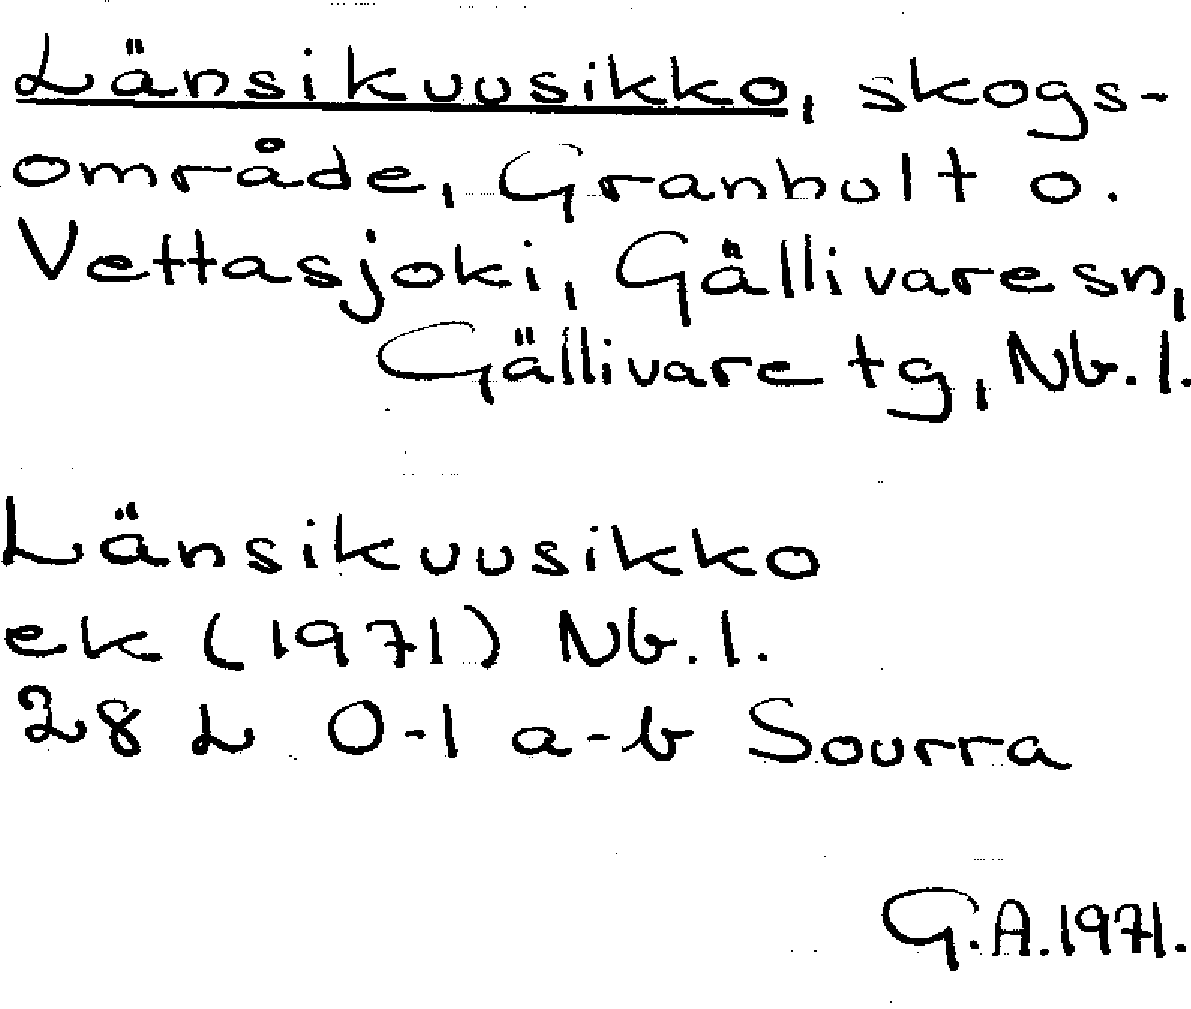 Länsikuusikko, skogs-
område, Granhult o.
Vettasjoki, Gällivare sn,
Gällivare tg, Nb. l.
Länsikuusikko
ek (1971) Nb. l.
28 L 0-1 a-b Sourra
G.A. 1971.